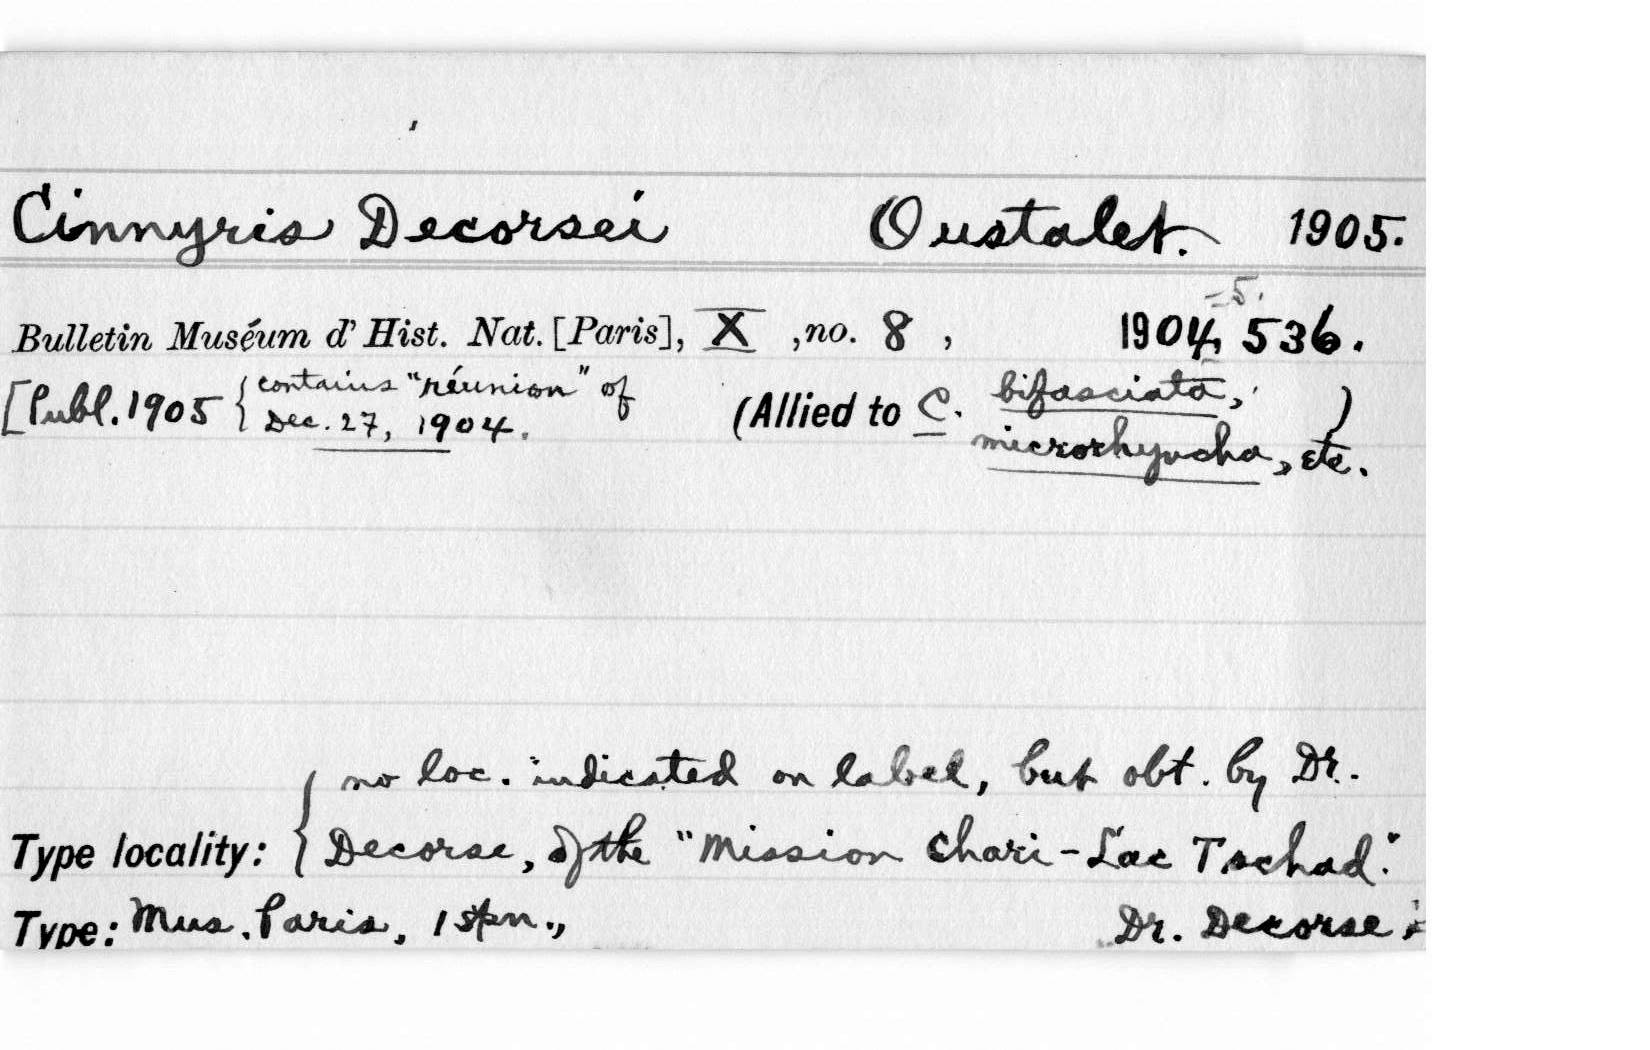 Cinnyris Decorsei Oustalet. 1905.
=5.
Bulletin Muséum d' Hist. Nat. [Paris], X , no. 8 , 1904, 536.
[Publ. 1905 { contains "réunion" of
Dec. 27, 1904.
(Allied to C. bifasciata,
microrhyncha, etc. )
no loc. indicated on label, but obt. by Dr.
Type locality: { Decorse, of the "Mission Chari-Lac Tschad."
Type: Mus. Paris, 1 spn., Dr. Decorse